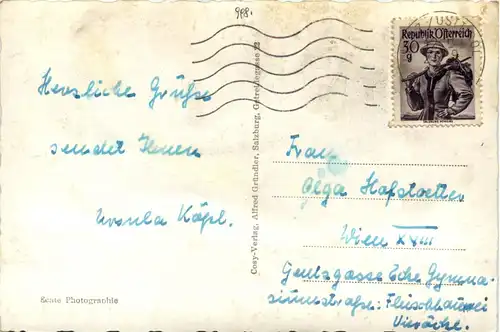 988.
Republik Österreich
30
g
Herzliche Grüße
sendet Ihnen
Ursula Kögl.
Echte Photographie
Cosy-Verlag, Alfred Gründler, Salzburg, Getreidegasse 22
Frau
Olga Hofstoetter
Wien XVIII
Gentzgasse Ecke Gymna-
siumstraße: Fleischhauerei